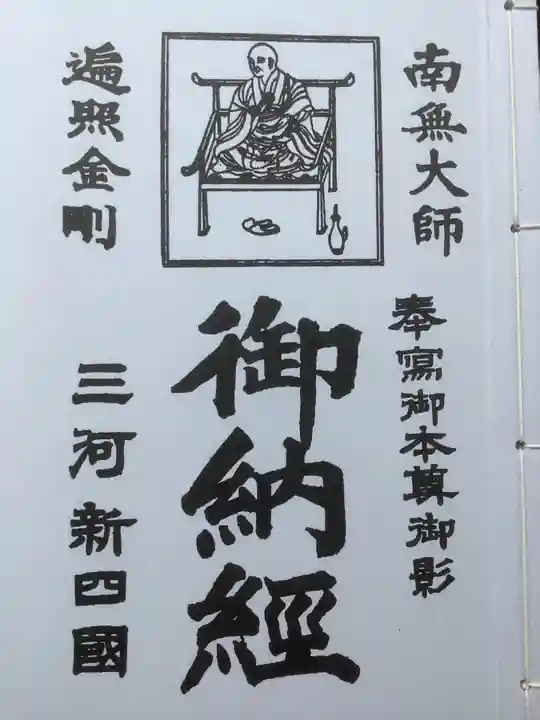 南無大師
遍照金剛
奉寫御本尊御影
御納經
三河新四國